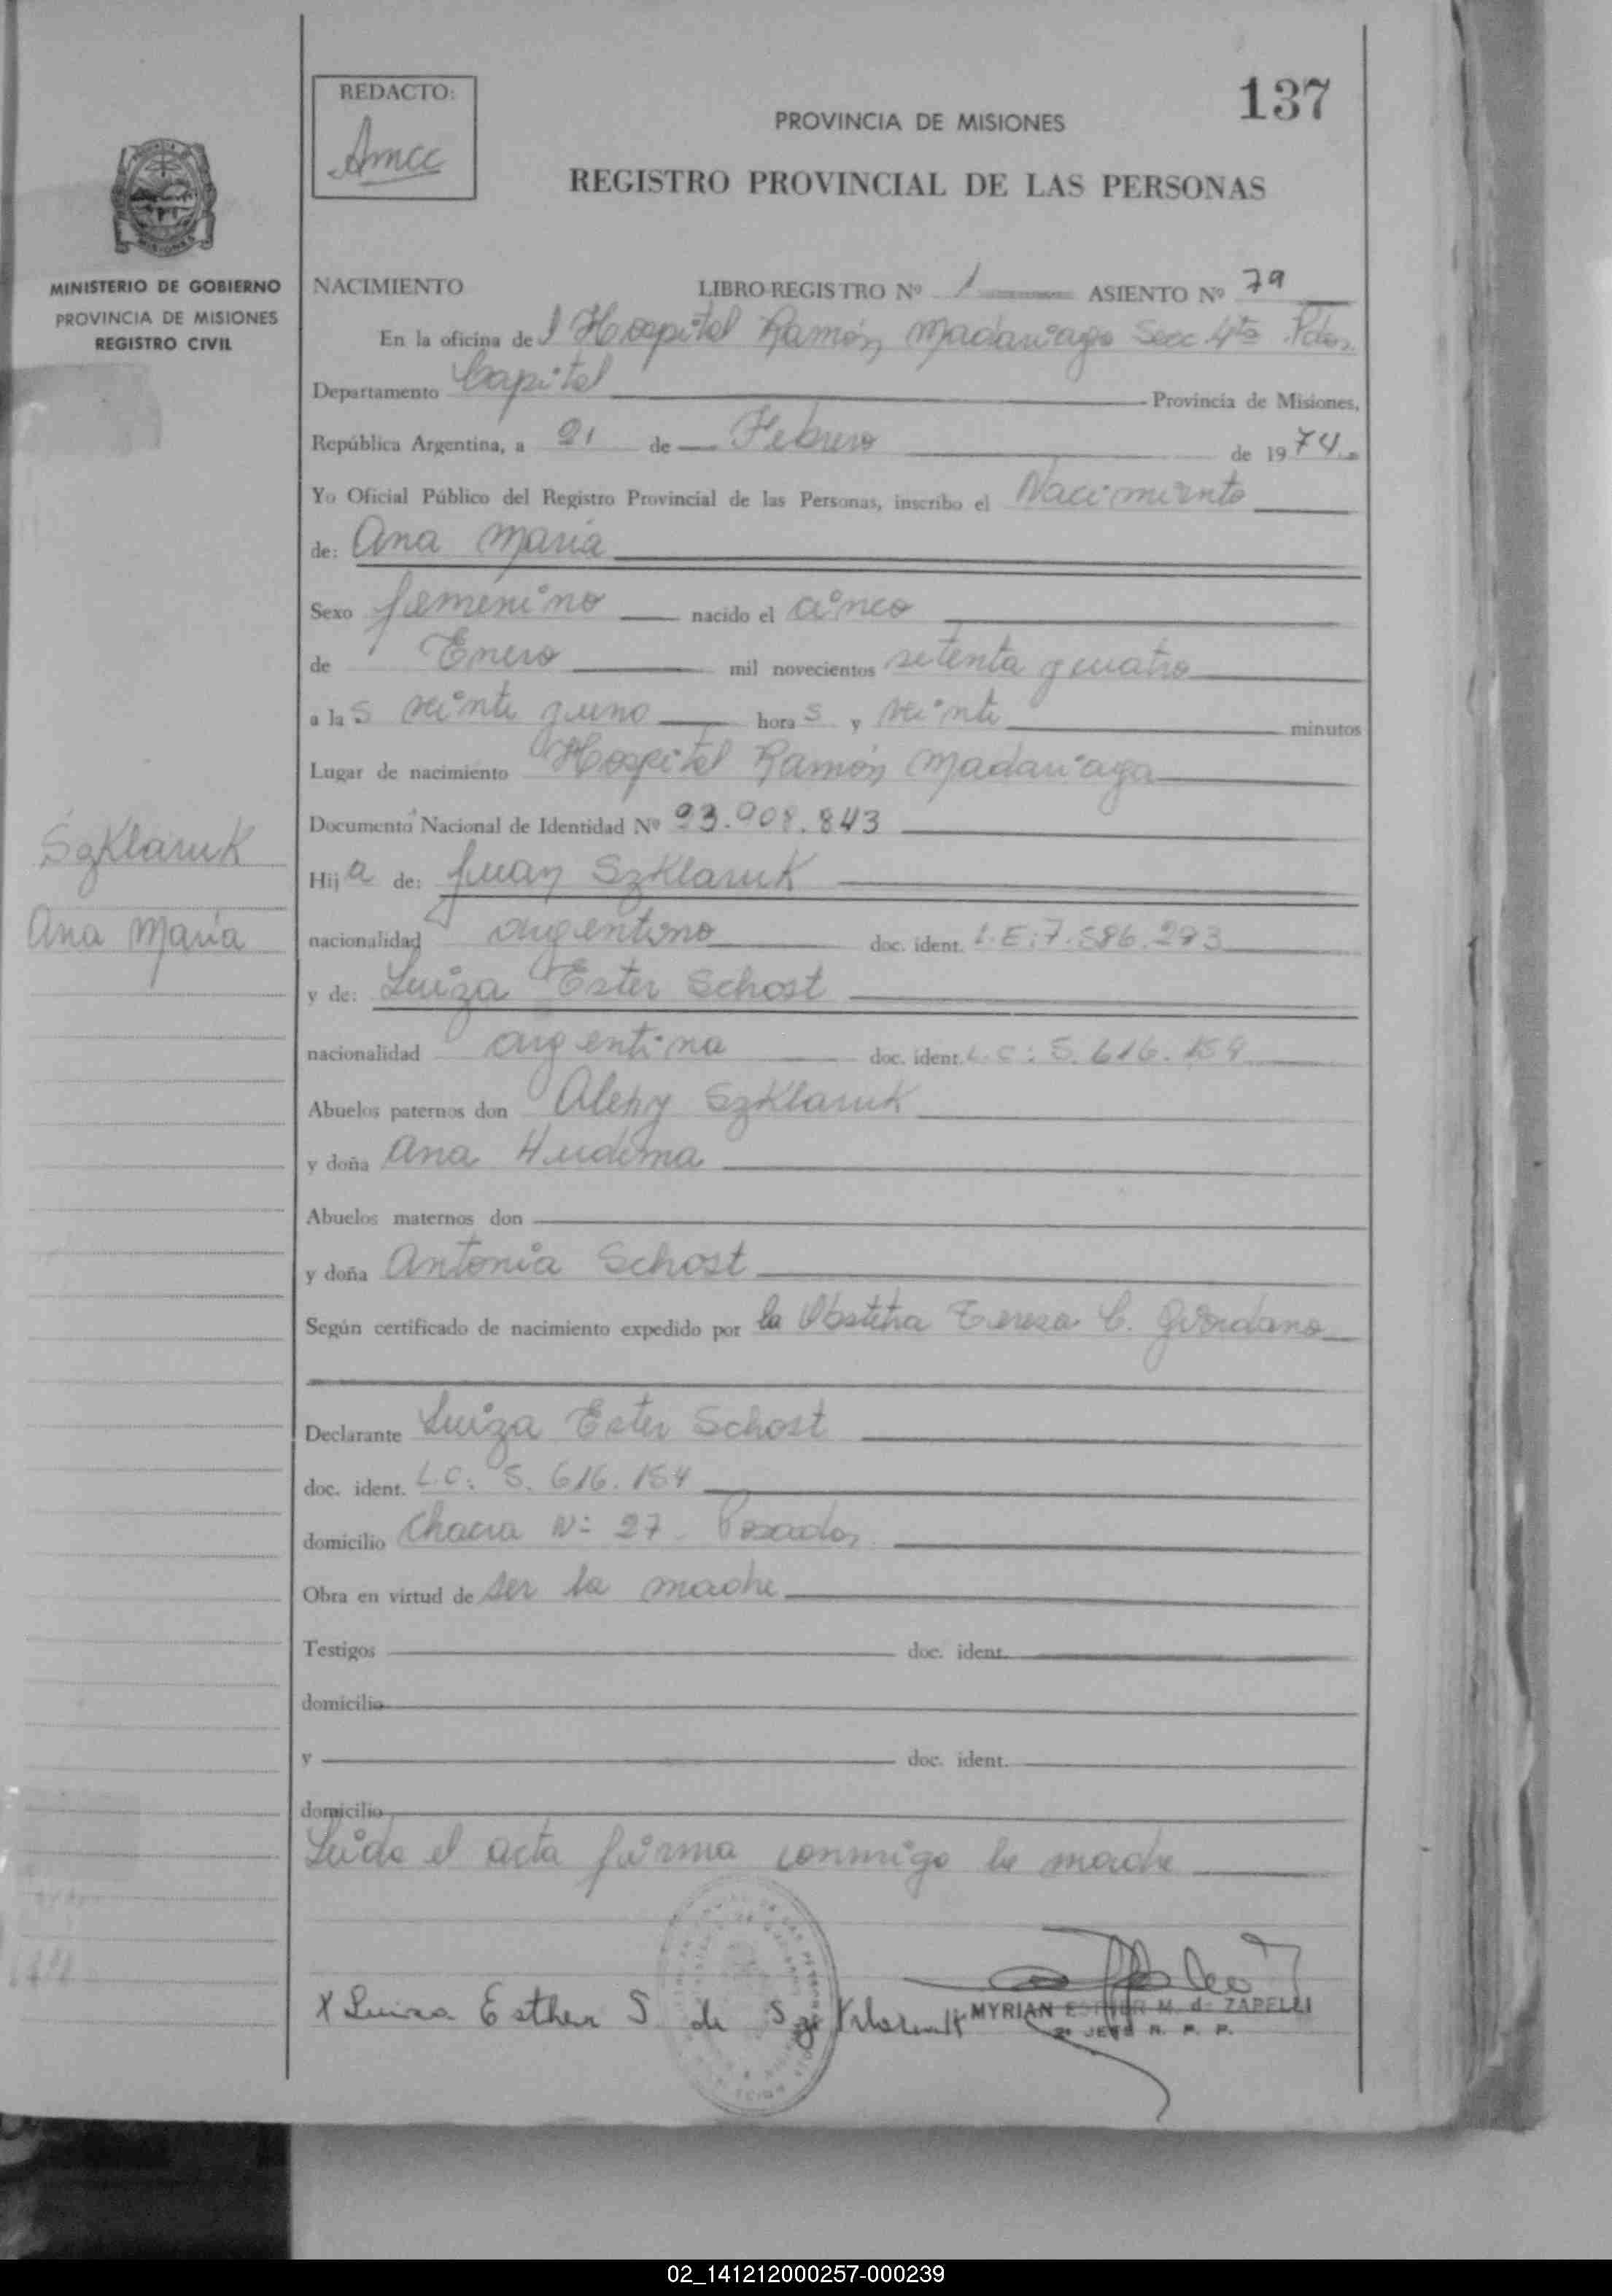 137
REDACTO:
Amcc
PROVINCIA DE MISIONES
REGISTRO PROVINCIAL DE LAS PERSONAS
MISIONES
MINISTERIO DE GOBIERNO
PROVINCIA DE MISIONES
REGISTRO CIVIL
NACIMIENTO LIBRO REGISTRO Nº 1 ASIENTO Nº 79
En la oficina de l Hospital Ramón Madariaga Secc. 4ta Pdas.
Departamento Capital Provincia de Misiones,
República Argentina, a 21 de Febrero de 1974.
Yo Oficial Público del Registro Provincial de las Personas, inscribo el Nacimiento
de: Ana María
Sexo femenino nacido el cinco
de Enero mil novecientos setenta y cuatro
a las veinte y uno horas y veinte minutos
Lugar de nacimiento Hospital Ramón Madariaga
Documento Nacional de Identidad Nº 23.908.843
Szklaruk
Ana María
Hija de: Juan Szklaruk
nacionalidad argentino doc. ident. L.E: 7.586.273
y de: Luiza Ester Schost
nacionalidad argentina doc. ident. L.C: 5.616.154
Abuelos paternos don Szklaruk
y doña Ana Hudema
Abuelos maternos don
y doña Antonia Schost
Según certificado de nacimiento expedido por la Obstetra Teresa C. Giordano
Declarante Luiza Ester Schost
doc. ident. L.C: 5.616.154
domicilio Chacra Nº 27 - Posadas
Obra en virtud de ser la madre
Testigos doc. ident.
domicilio
y doc. ident.
domicilio
Leída el acta firma conmigo la madre
X Luiza Esther S de Szklaruk
MYRIAN ESTHER M. de ZAPELLI
2º JEFE R. P. P.
02_141212000257-000239